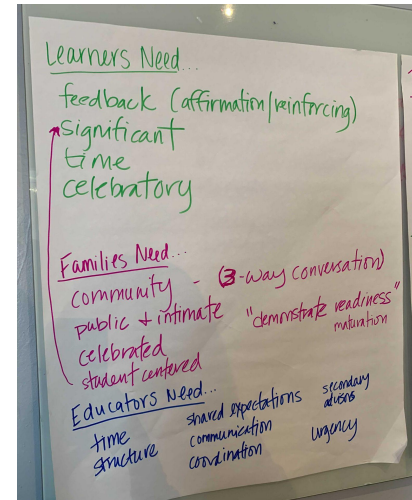 Learners Need...
feedback (affirmation/reinforcing)
significant
time
celebratory
Families Need...
community - (3-way conversation)
public + intimate "demonstrate readiness"
maturation
celebrated
student centered
Educators Need...
time shared expectations secondary
structure communication
coordination urgency